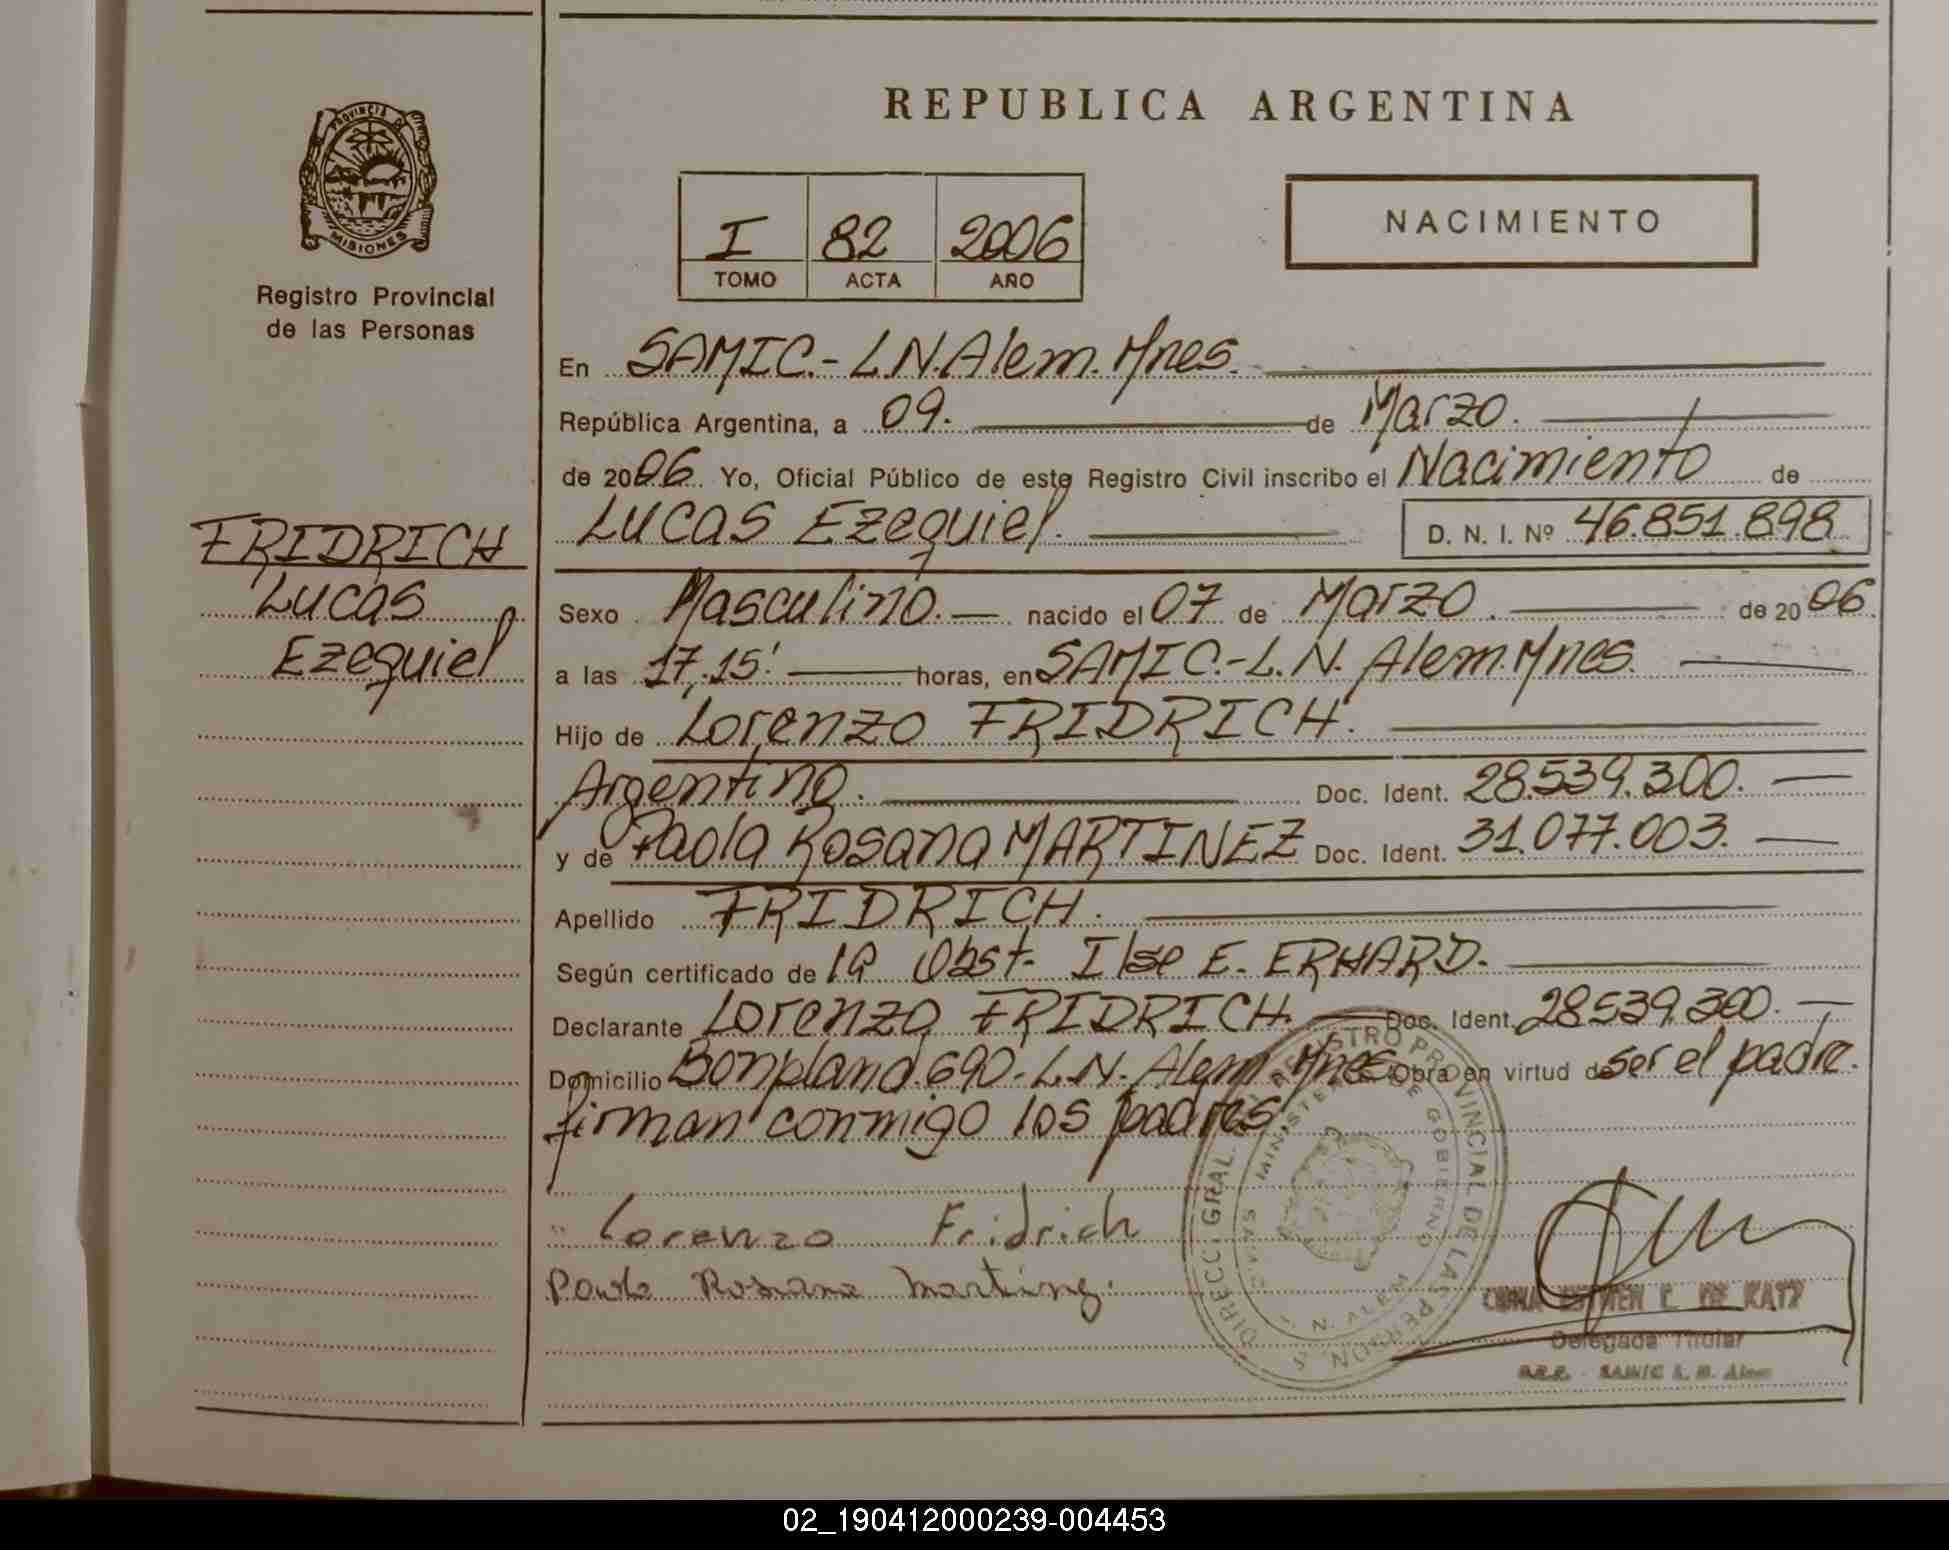 REPUBLICA ARGENTINA
PROVINCIA DE MISIONES
Registro Provincial
de las Personas
I 82 2006
TOMO ACTA AÑO
NACIMIENTO
FRIDRICH
Lucas
Ezequiel
En SAMIC.- L.N.Alem.Mnes.
República Argentina, a 09. de Marzo.
de 2006. Yo, Oficial Público de este Registro Civil inscribo el Nacimiento de
Lucas Ezequiel. D. N. I. Nº 46.851.898
Sexo Masculino.— nacido el 07 de Marzo. de 2006
a las 17,15' horas, en SAMIC.-L.N. Alem.Mnes.
Hijo de Lorenzo FRIDRICH.
Argentino. Doc. Ident. 28.539.300.—
y de Paola Rosana MARTINEZ Doc. Ident. 31.077.003.—
Apellido FRIDRICH.
Según certificado de la Obst. Ilse E. ERHARD.
Declarante Lorenzo FRIDRICH. Doc. Ident. 28539.300.—
Domicilio Bonpland.690.-L.N.-Alem Mnes. Obra en virtud de ser el padre.
firman conmigo los padres,
Lorenzo Fridrich
Paola Rosana Martinez.
DIRECC. GRAL. REGISTRO PROVINCIAL DE LAS PERSONAS
MINISTERIO DE GOBIERNO
L. N. ALEM
DE KATZ
Delegada Titular
SAMIC L. N. Alem
02_190412000239-004453